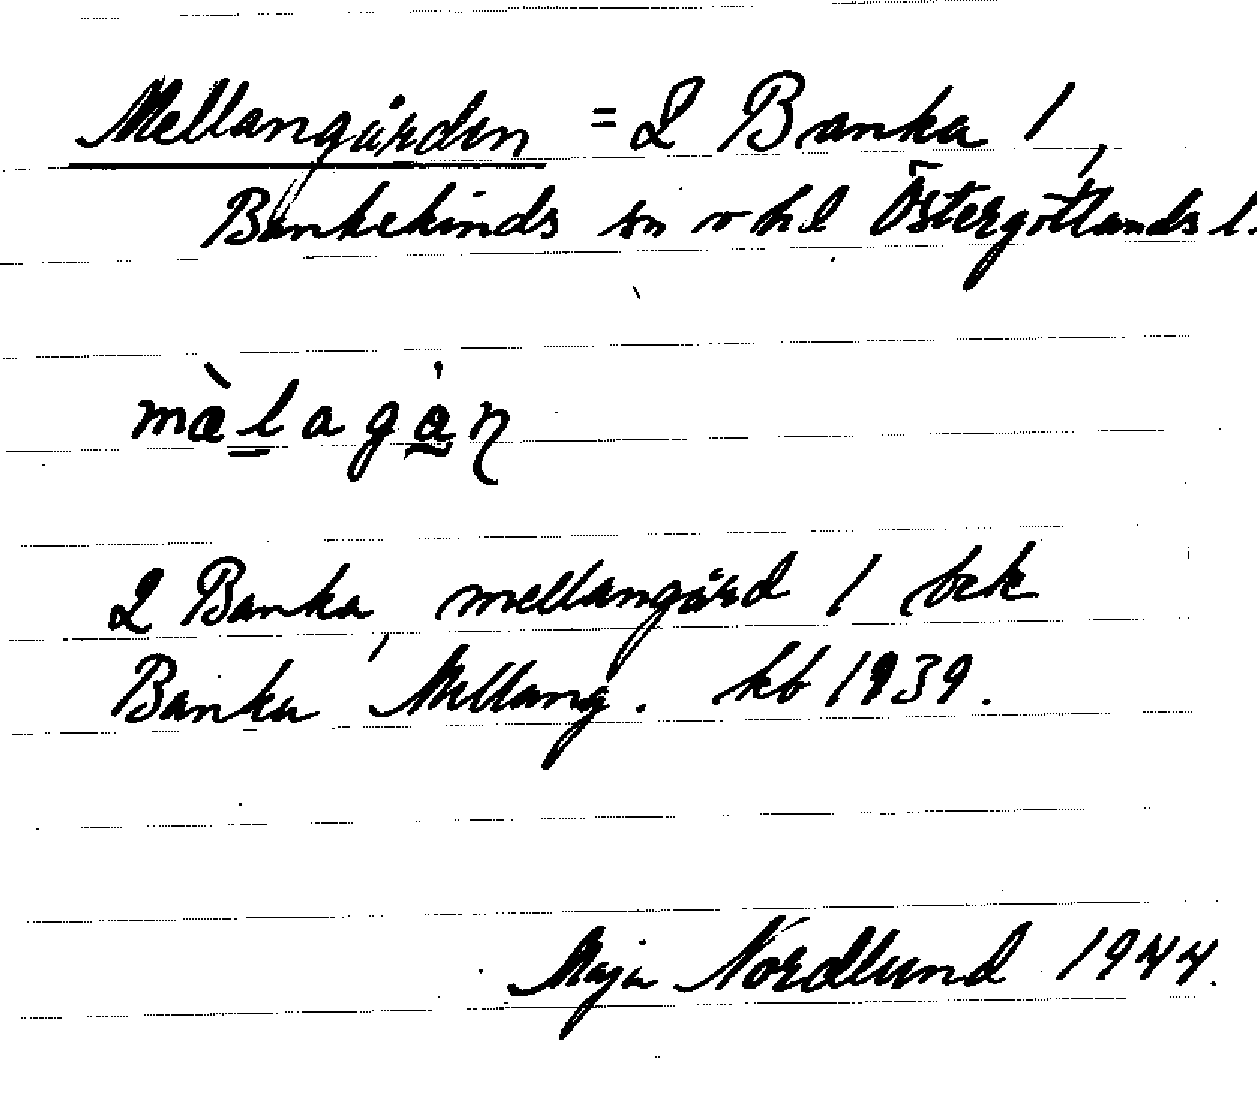 Mellangården = 2 Banka 1,
Bankekinds sn o hd Östergötlands l.
mὰlagån
2 Banka, mellangård 1 bek
Banka Mellang. kb 1939.
Maja Nordlund 1944.